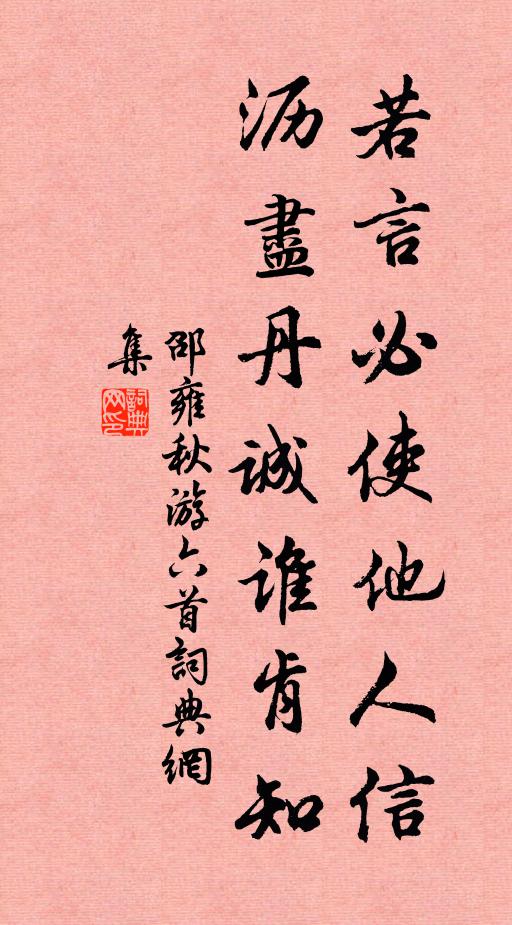 若言必使他人信
沥盡丹诚谁肯知
邵雍秋游六首詞典網
集
詞典
网印